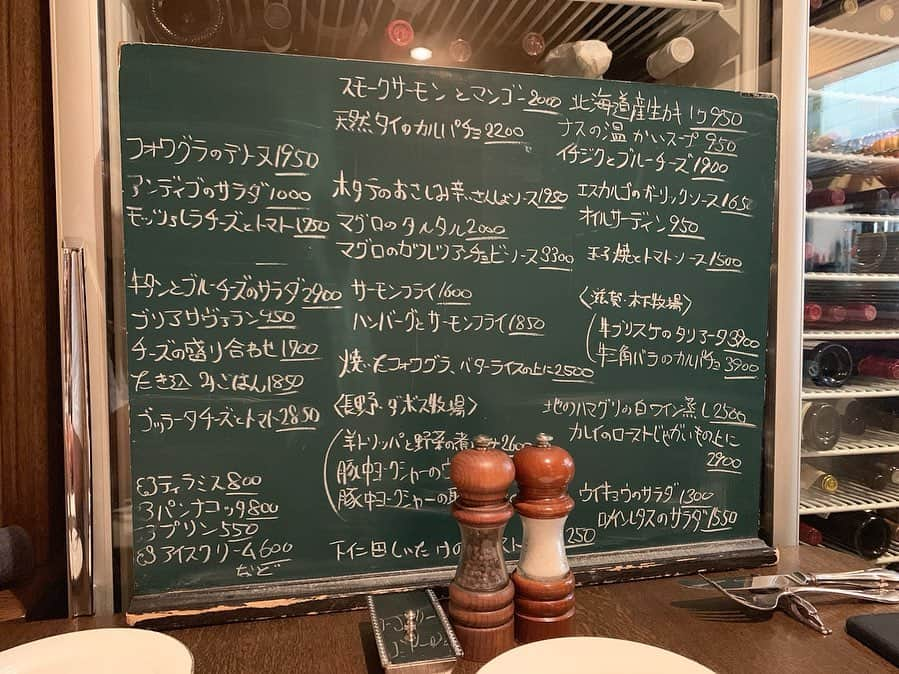 フォワグラのテリーヌ 1950
アンディブのサラダ 1000
モッツァレラチーズとトマト 1750
牛タンとブルーチーズのサラダ 2900
ブリアサヴァラン 450
チーズの盛り合わせ 1900
たき込みごはん 1850
ブッラータチーズとトマト 2850
ティラミス 800
パンナコッタ 800
プリン 550
アイスクリーム 600
など
スモークサーモンとマンゴー 2000
天然タイのカルパチョ 2200
ホタテのおさしみ辛いさんしょソース 1950
マグロのタルタル 2000
マグロのカツレツアンチョビソース 3300
サーモンフライ 1600
ハンバーグとサーモンフライ 1850
焼いたフォワグラ、バターライスの上に 2500
〈長野・ダボス牧場〉
羊トリッパと野菜の煮 2600
豚中ヨークシャーの
豚中ヨークシャーの
下仁田しいたけの 250
北海道産生カキ 1ケ 950
ナスの温かいスープ 950
イチジクとブルーチーズ 1900
エスカルゴのガーリックソース 1650
オイルサーディン 950
玉子焼とトマトソース 1500
〈滋賀・木下牧場〉
牛ブリスケのタリアータ 3900
牛三角バラのカルパチョ 3900
地のハマグリの白ワイン蒸し 2500
カレイのローストじゃがいもの上に
2900
ウイキョウのサラダ 1300
ロメインレタスのサラダ 1550